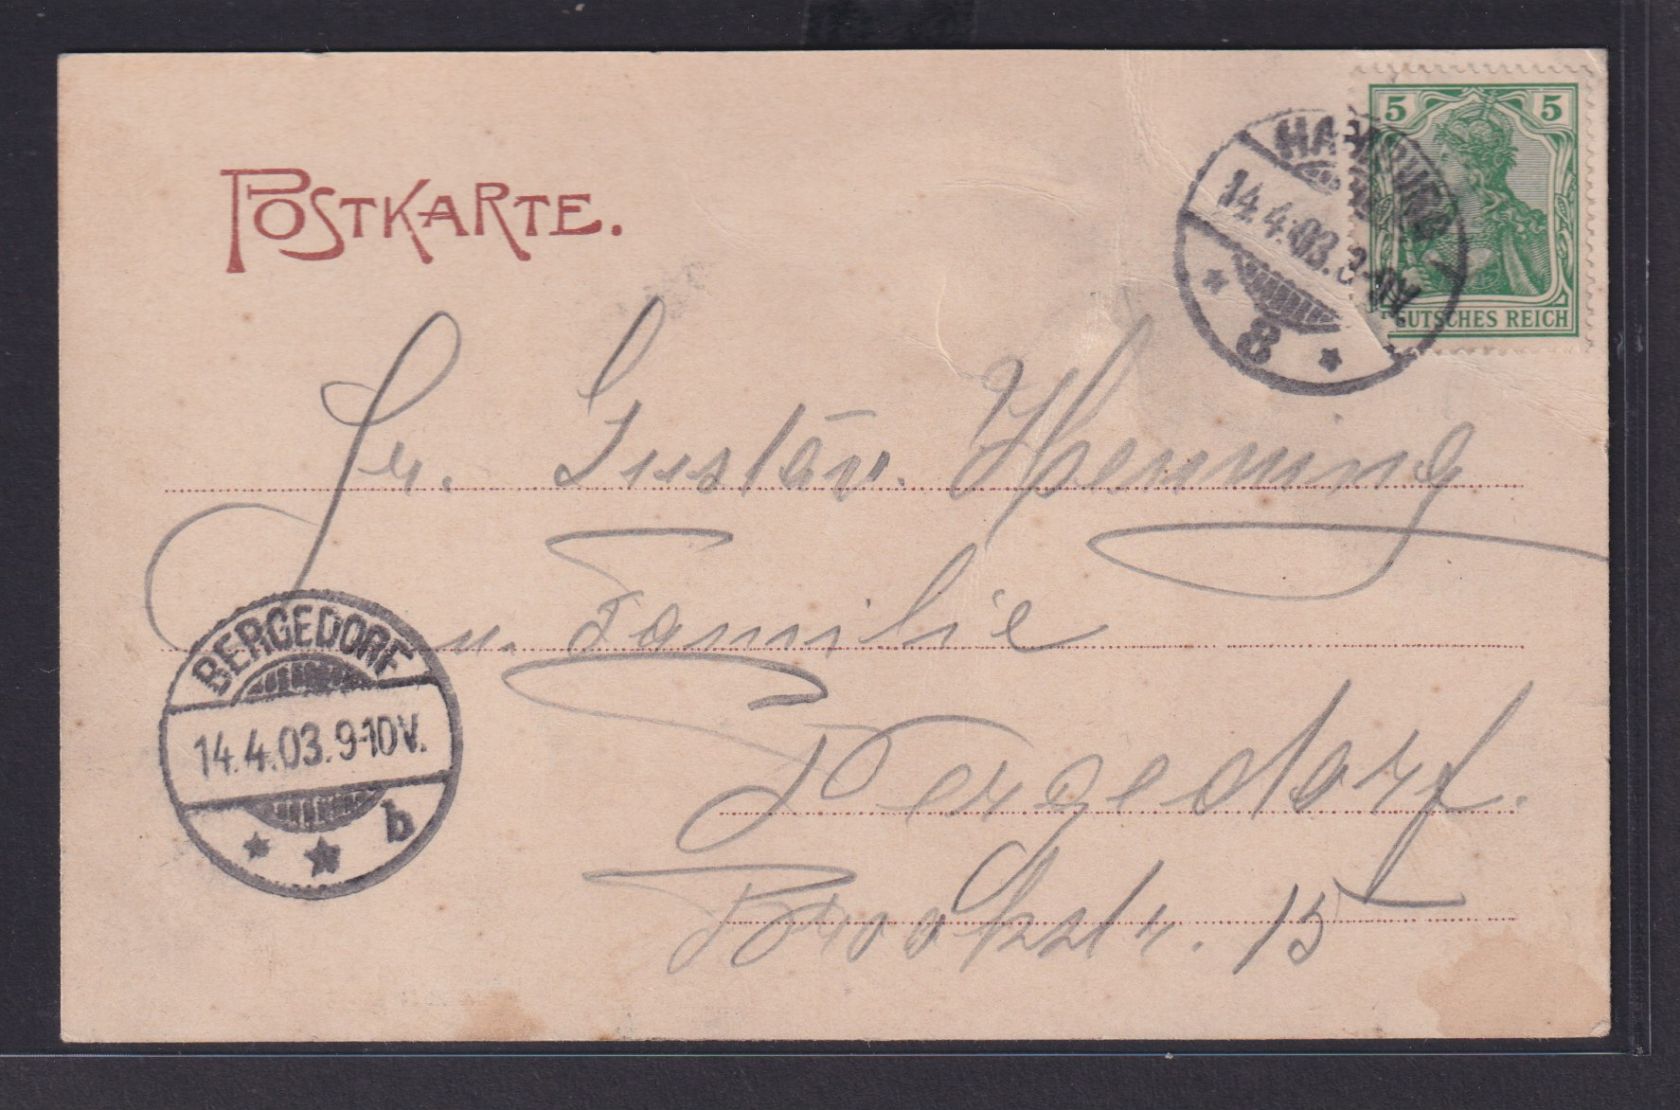 POSTKARTE.
5 5
HAMBURG
14.4.03.
8
UTSCHES REICH
Fr. Gustav. Henning
u. Familie
Bergedorf.
Brookstr. 15
BERGEDORF
14.4.03.9-10V.
b